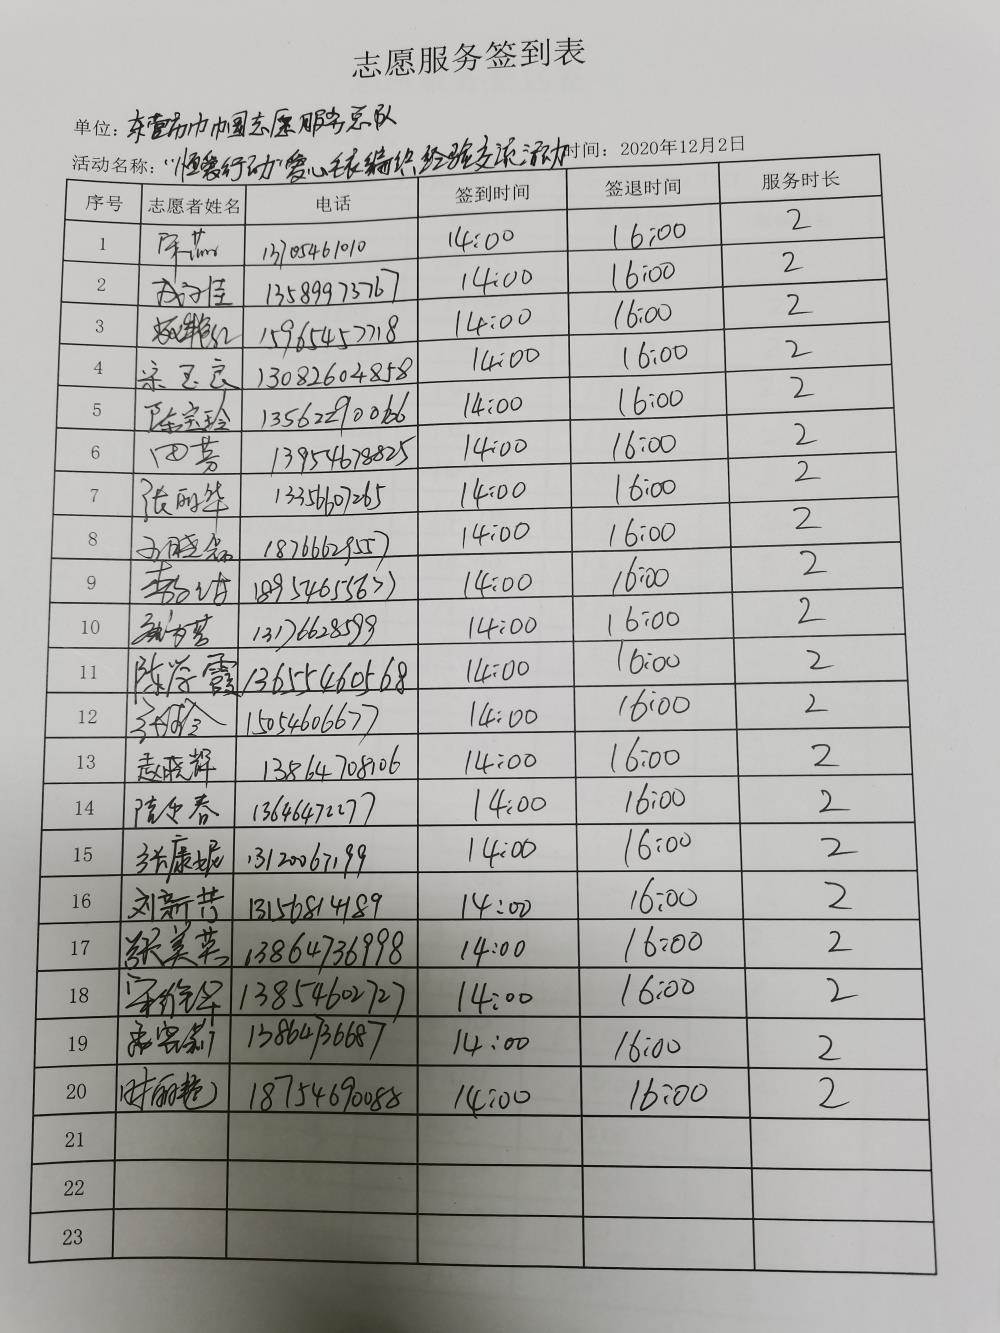 志愿服务签到表
单位：东营市巾帼志愿服务总队
活动名称：“恒爱行动”爱心毛衣编织经验交流活动 时间：2020年12月2日
序号 志愿者姓名 电话 签到时间 签退时间 服务时长
1 13705461010 14:00 16:00 2
2 13589973767 14:00 16:00 2
3 15965457718 14:00 16:00 2
4 宋玉良 13082604858 14:00 16:00 2
5 陈宝玲 13562290066 14:00 16:00 2
6 田芳 13954678825 14:00 16:00 2
7 张丽华 13356607265 14:00 16:00 2
8 18766629557 14:00 16:00 2
9 18954655677 14:00 16:00 2
10 13176628599 14:00 16:00 2
11 陈学霞 13655460568 14:00 16:00 2
12 15054606677 14:00 16:00 2
13 赵晓辉 13864708106 14:00 16:00 2
14 13646472277 14:00 16:00 2
15 张康妮 13120067199 14:00 16:00 2
16 刘新苦 13156814189 14:00 16:00 2
17 张美英 13864736998 14:00 16:00 2
18 13854602727 14:00 16:00 2
19 13864736687 14:00 16:00 2
20 时丽艳 18754690088 14:00 16:00 2
21
22
23